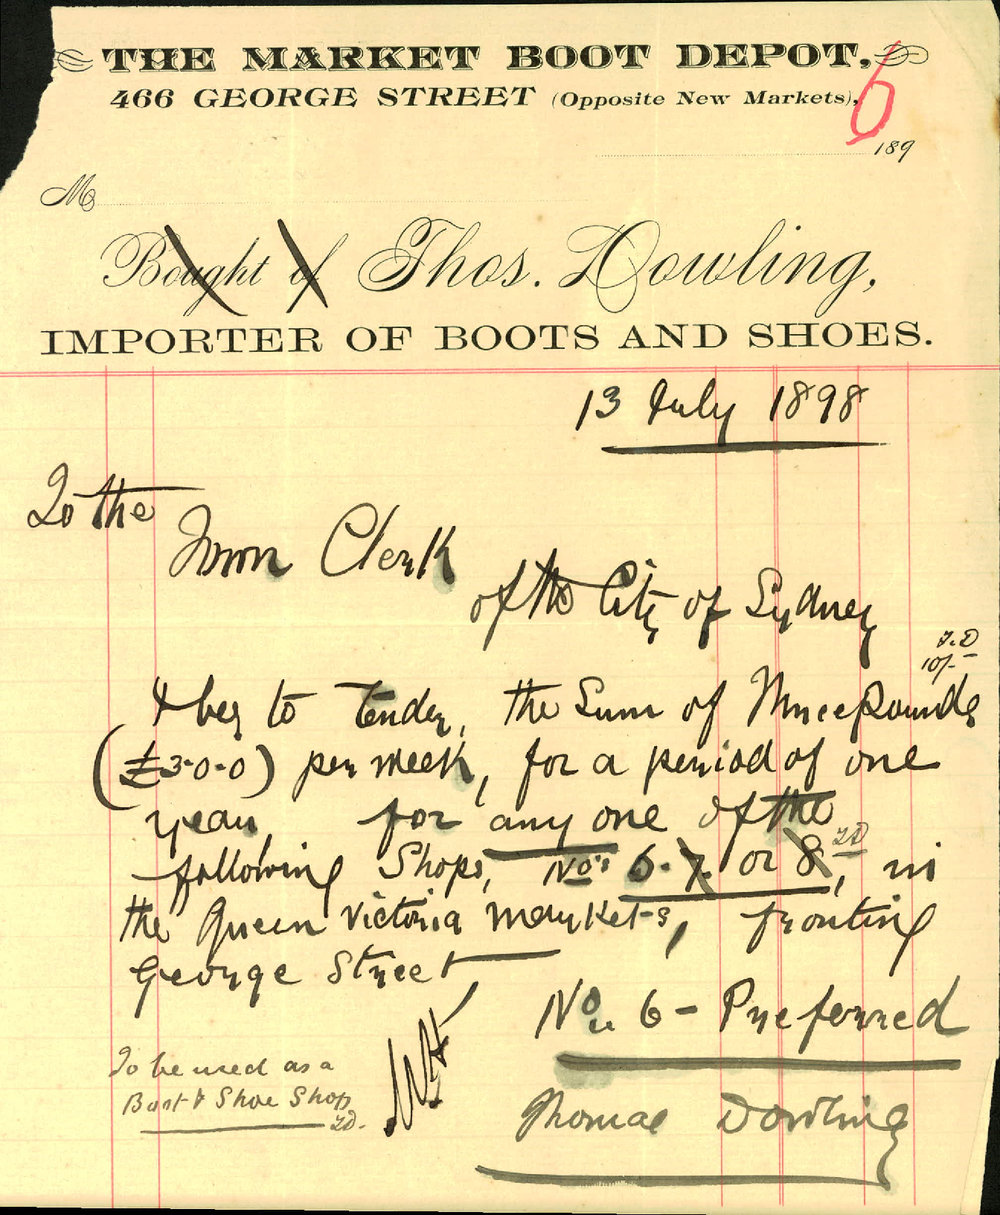 THE MARKET BOOT DEPOT,
466 GEORGE STREET (Opposite New Markets),
6
189
M
Bought of Thos. Dowling,
IMPORTER OF BOOTS AND SHOES.
13 July 1898
To the
Town Clerk
of the City of Sydney
T.D
10/-
I beg to Tender, the Sum of Three Pounds
(£3-0-0) per week, for a period of one
year, for any one of the
following Shops, No's 6. 7. or 8, TD in
the Queen Victoria Markets, fronting
George Street
No. 6 - Preferred
To be used as a
Boot & Shoe Shop
TD.
Thomas Dowling